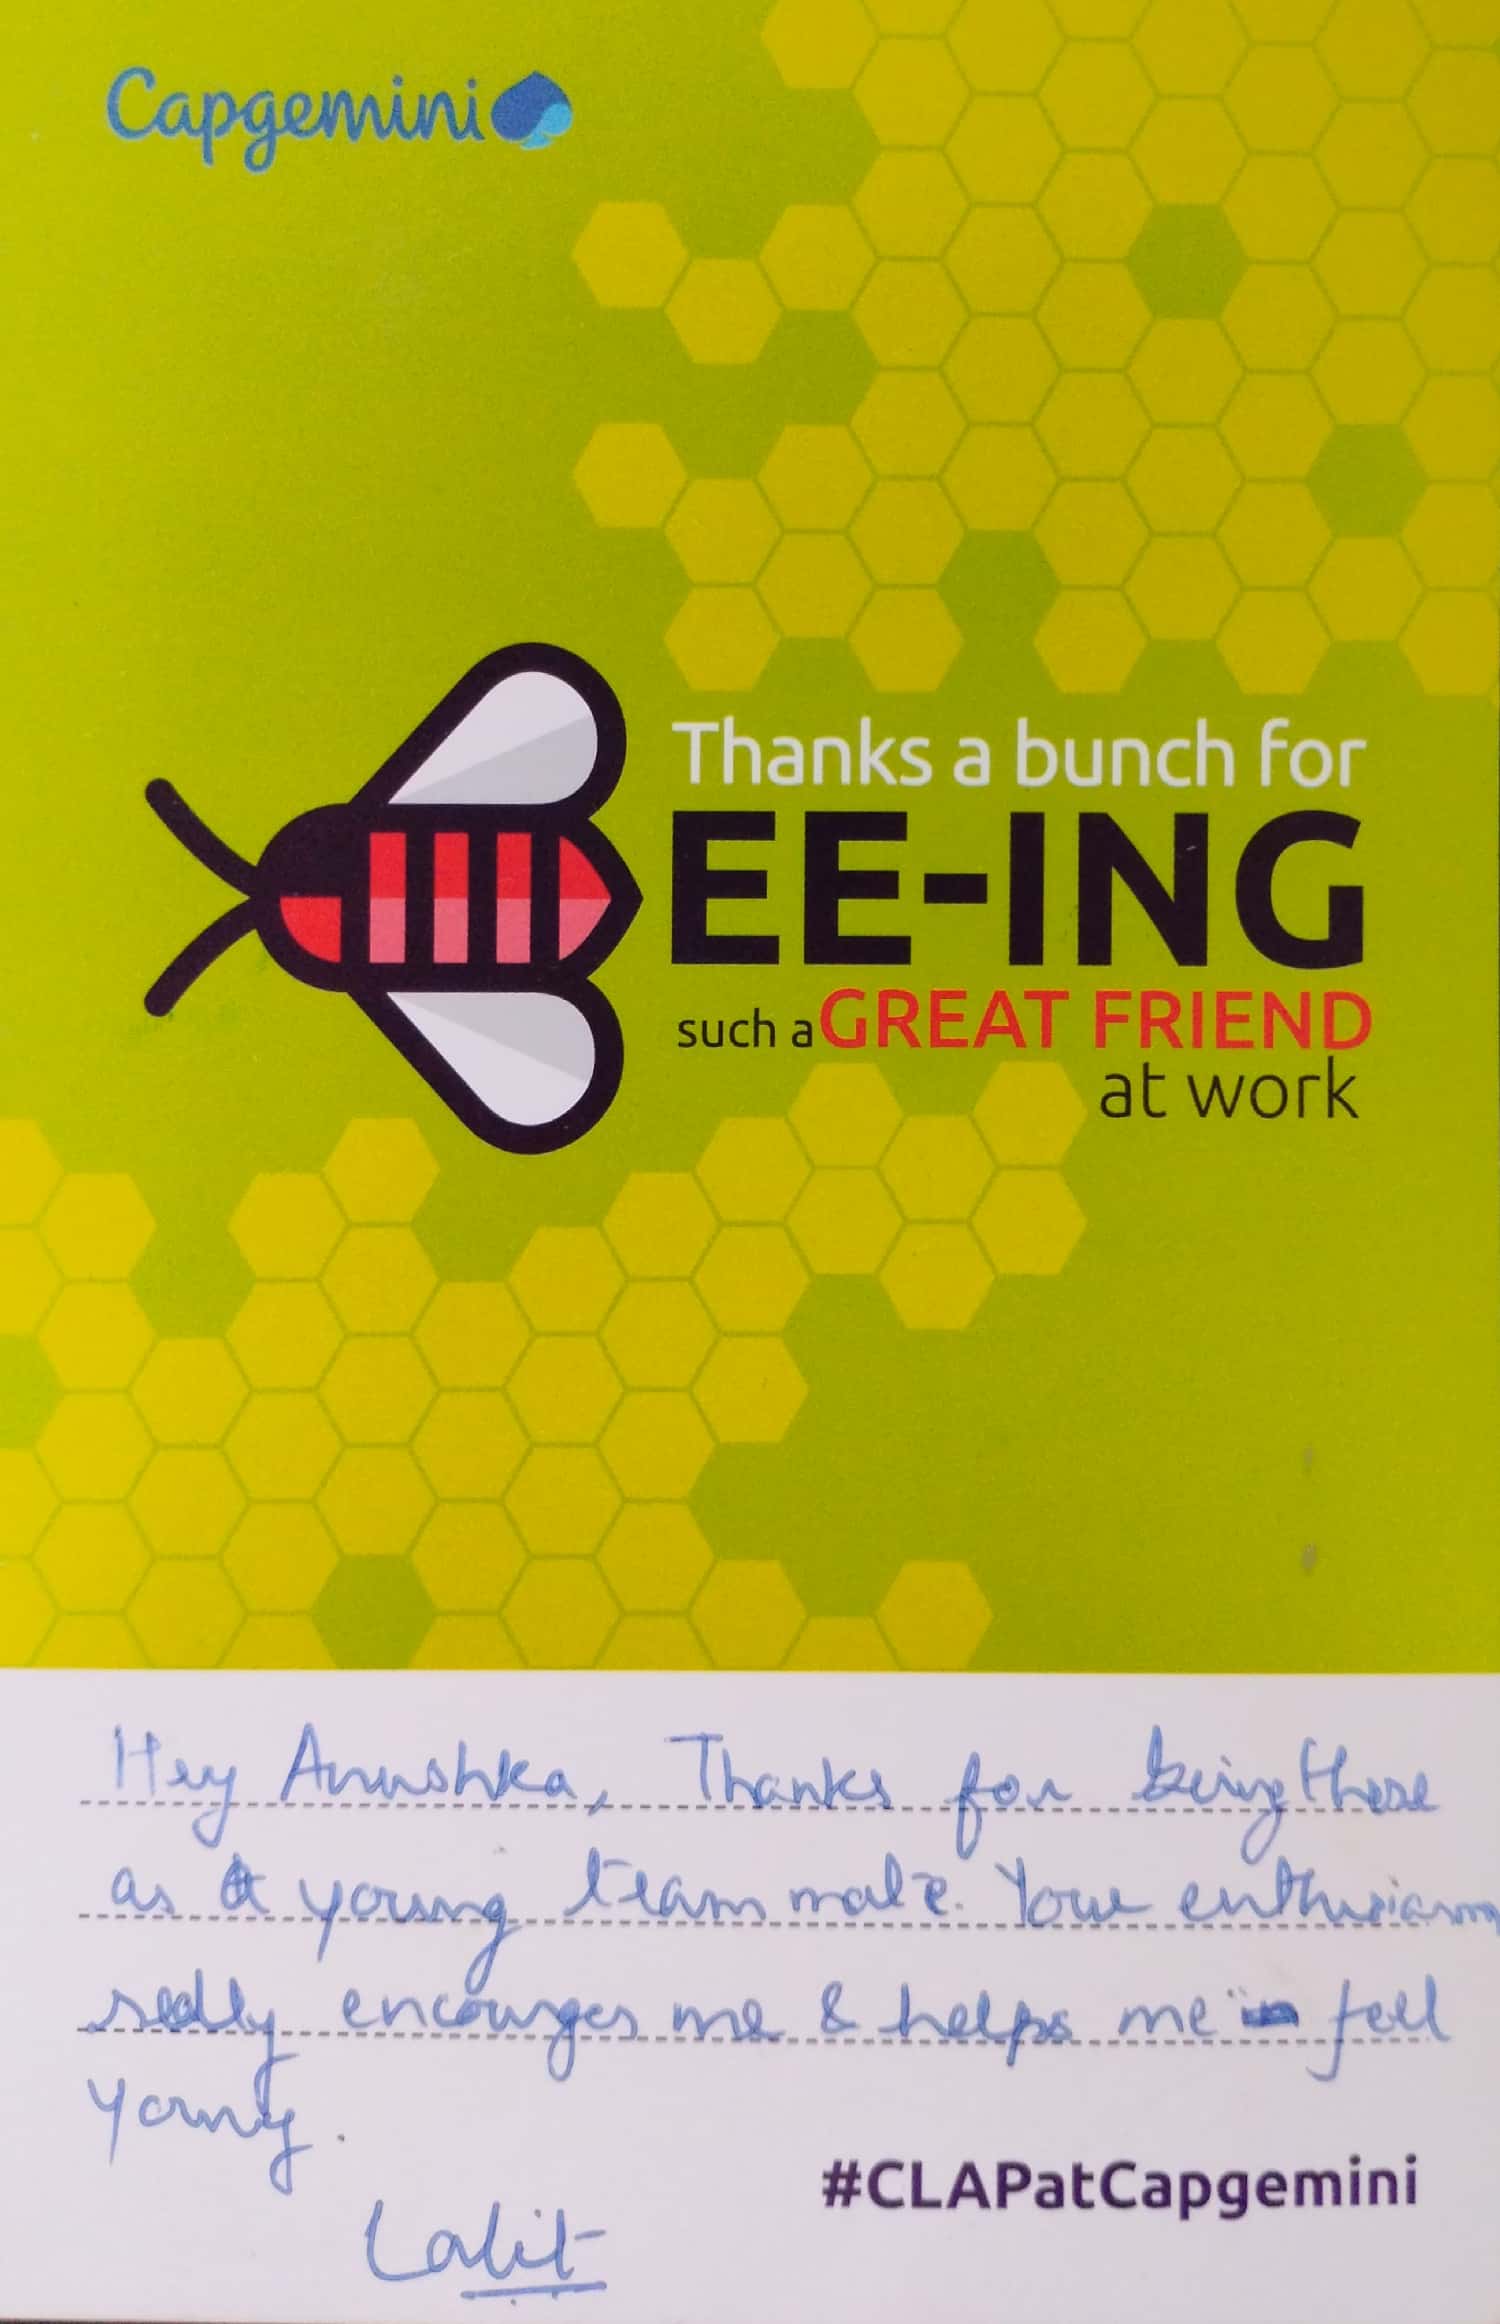 Capgemini
Thanks a bunch for
EE-ING
such a GREAT FRIEND
at work
Hey Anushka, Thanks for being there
as a young team mate. Your enthusiasm
really encourges me & helps me feel
young.
#CLAPatCapgemini
Lalit